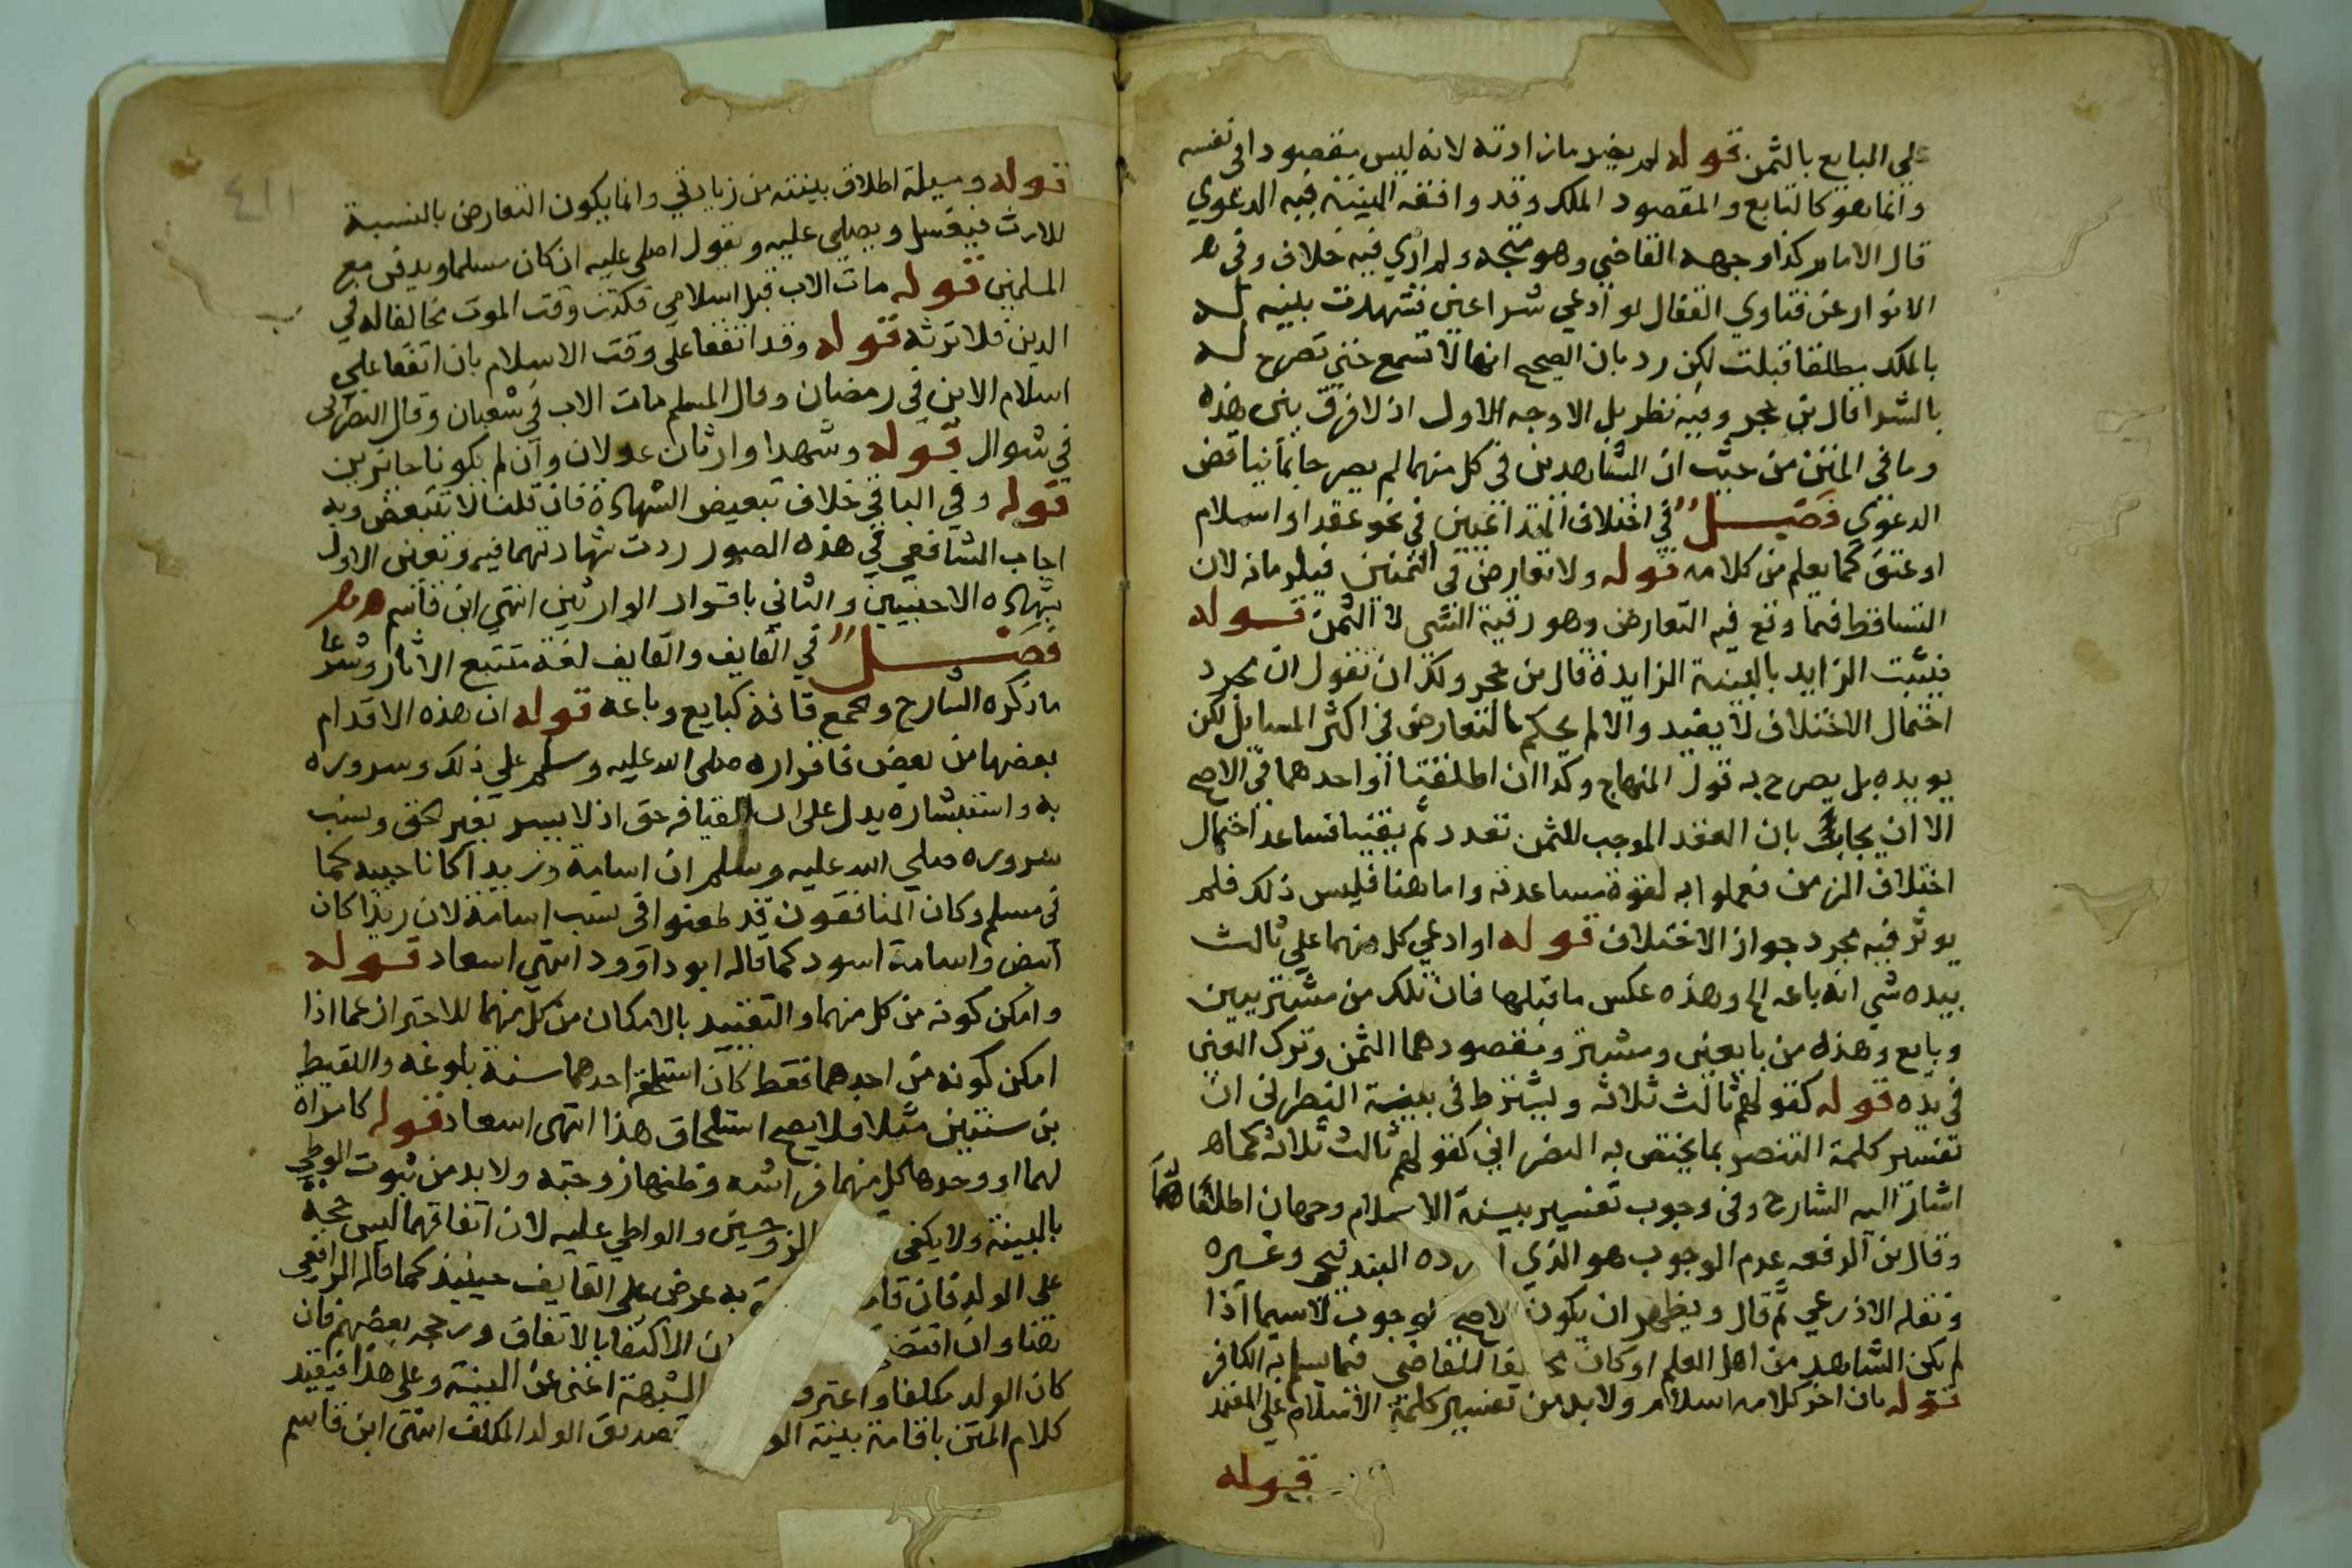 على البايع بالثمن قوله لم يضر ما زادته لانه ليس مقصودا في نفسه
وانما هو كالتابع والمقصود الملك وقد وافقه البينة فيه الدعوي
قال الامام كذا وجهه القاضي وهو متجه ولم ار في فيه خلاف وفي
الانوار عن فتاوي القفال لو ادعي شرا عين فشهدت بينة له
بالملك مطلقا قبلت لكن رد بان الصحيح انها لا تسمع حتي تصرح له
بالشرا قال بن حجر وفيه نظر بل الاوجه الاول اذ لا فرق بين هذه
وما في المتن من حيث ان الشاهدين في كل منهما لم يصرحا بما يناقض
الدعوي فصل في اختلاف المتداعيين في نحو عقد او اسلام
او عتق كما يعلم من كلامه قوله ولا تعارض في الثمنين فيلزمانه لان
التساقط فيما وقع فيه التعارض وهو رقبة الشي لا الثمن قوله
فيثبت الزايد بالبينة الزايدة قال بن حجر ولك ان تقول ان مجرد
احتمال الاختلاف لا يفيد والا لم يحكم بالتعارض في اكثر المسايل لكن
يويده بل يصرح به قول المنهاج وكذا ان اطلقتا او احدهما في الاصح
الا ان يجاب بان العقد الموجب للثمن تعدد ثم يقينا فساعد احتمال
اختلاف الزمن فعملوا به لقوة مساعدته واما هنا فليس ذلك فلم
يوثر فيه مجرد جواز الاختلاف قوله او ادعي كل منهما علي ثالث
بيده شي انه باعه الخ وهذه عكس ما قبلها فان تلك من مشتريين
وبايع وهذه من بايعين ومشتر ومقصودهما الثمن وترك العين
في يده قوله كقولهم ثالث ثلاثه ويشترط في بينة النصراني ان
تفسير كلمة التنصر بما يختص به النصراني كقولهم ثالث ثلاثه كما
اشار اليه الشارح وفي وجوب تفسير بينة الاسلام وجهان اطلقاهما
وقال بن الرفعه عدم الوجوب هو الذي اورده البندنيجي وغيره
ونقله الاذرعي ثم قال ويظهر ان يكون الاصح الوجوب لاسيما اذا
لم يكن الشاهد من اهل العلم او كان مخالفا للقاضي فيما يسلم به الكافر
قوله بان اخر كلامه اسلام ولا بد من تفسير كلمة الاسلام علي المعتمد
قوله
٤١١
قوله وسيلة اطلاق بينته من زيادتي وانما يكون التعارض بالنسبة
للارث فيغسل ويصلي عليه ويقول اصلي عليه ان كان مسلما ويدفن مع
المسلمين قوله مات الاب قبل اسلامي فكنت وقت الموت مخالفا له في
الدين فلا ترثه قوله وقد اتفقا على وقت الاسلام بان اتفقا علي
اسلام الابن في رمضان وقال المسلم مات الاب في شعبان وقال النصراني
في شوال قوله وشهدا وارثان عدولان وان لم يكونا حايزين
قوله وفي الباقي خلاف تبعيض الشهادة فان قلنا لا تتبعض وبه
اجاب الشافعي في هذه الصور ردت شهادتهما فيه وتعين الاول
بشهادة الاجنبيين والثاني باقرار الوارثين انتهي ابن قاسم
فصل في القايف والقايف لغة متتبع الاثار وشرعا
ما ذكره الشارح وجمع قافة كبايع وباعة قوله ان هذه الاقدام
بعضها من بعض فاقراره صلى الله عليه وسلم على ذلك وسروره
به واستبشاره يدل على ان القيافه حق اذ لا يسر بغير حق وسبب
سروره صلي الله عليه وسلم ان اسامة وزيدا كانا حبيبه كما
في مسلم وكان المنافقون قد طعنوا في نسب اسامة لان زيدا كان
ابيض واسامة اسود كما قاله ابو داوود انتهي اسعاد قوله
وامكن كونه من كل منهما والتقييد بالامكان من كل منهما للاحتراز عما اذا
امكن كونه من احدهما فقط كان استلحقه احدهما سنة بلوغه واللقيط
بن سنتين مثلا فلا يصح استلحاق هذا انتهى اسعاد قوله كامراة
لهما او وجدها كل منهما فراشه وظنها زوجته ولا بد من ثبوت الوطي
بالبينة ولا يكفي الزوجين والواطي عليه لان اتفاقهما ليس حجة
على الولد فان قا به عرض على القايف حينيذ كما قاله الرافعي
هنا وان اقتضي ان الاكتفا بالاتفاق ورجحه بعضهم فان
كان الولد مكلفا واعترف الشبهة اغنى عن البينة وعلى هذا فيقيد
كلام المتن باقامة بينة الو تصديق الولد المكلف انتهى ابن قاسم